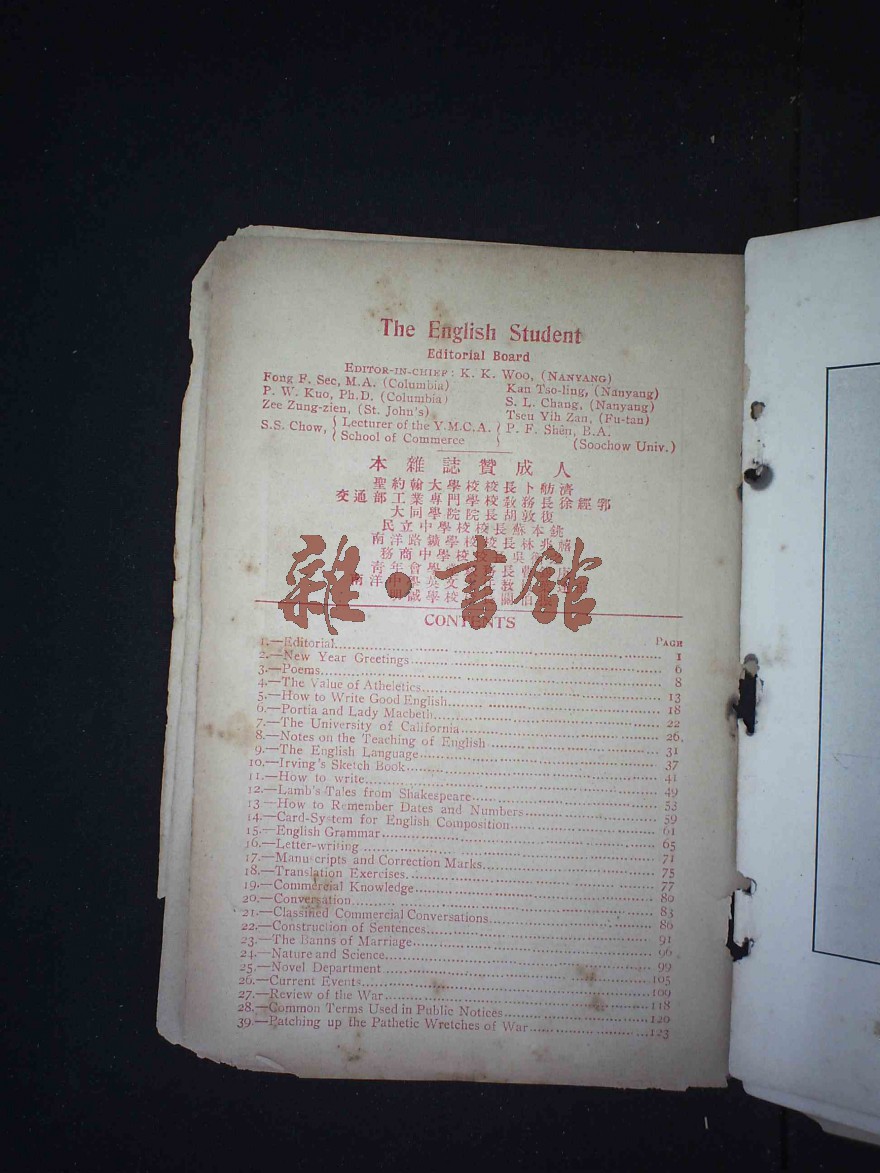 The English Student
Editorial Board
EDITOR-IN-CHIEF: K. K. WOO, (NANYANG)
Fong F. Sec, M.A. (Columbia)
P. W. Kuo, Ph.D. (Columbia)
Zee Zung-zien, (St. John's)
S.S. Chow, { Lecturer of the Y.M.C.A. School of Commerce }
Kan Tso-ling, (Nanyang)
S. L. Chang, (Nanyang)
Tseu Yih Zan, (Fu-tan)
P. F. Shên, B.A.
(Soochow Univ.)
本雜誌贊成人
聖約翰大學校校長卜舫濟
交通部工業專門學校教務長徐經郛
大同學院院長胡敦復
民立中學校校長蘇本銚
南洋路鑛學校校長林兆
務商中學校 吳
青年會學 長
南洋中學英文 教
學校
雜·書館
CONTENTS
PAGE
1.—Editorial 1
2.—New Year Greetings 6
3.—Poems 8
4.—The Value of Atheletics 13
5.—How to Write Good English 18
6.—Portia and Lady Macbeth 22
7.—The University of California 26
8.—Notes on the Teaching of English 31
9.—The English Language 37
10.—Irving's Sketch Book 41
11.—How to write 49
12.—Lamb's Tales from Shakespeare 53
13.—How to Remember Dates and Numbers 59
14.—Card-System for English Composition 61
15.—English Grammar 65
16.—Letter-writing 71
17.—Manuscripts and Correction Marks 75
18.—Translation Exercises 77
19.—Commercial Knowledge 80
20.—Conversation 83
21.—Classified Commercial Conversations 86
22.—Construction of Sentences 91
23.—The Banns of Marriage 96
24.—Nature and Science 99
25.—Novel Department 105
26.—Current Events 109
27.—Review of the War 118
28.—Common Terms Used in Public Notices 120
39.—Patching up the Pathetic Wretches of War 123